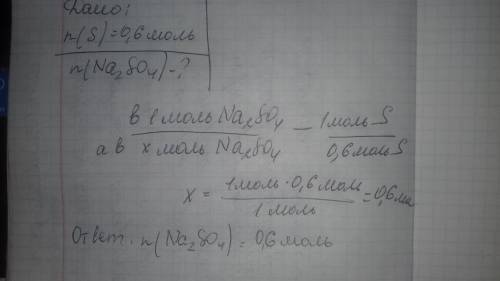 Дано:
n(S)=0,6моль
n(Na₂SO₄)-?
в 1 моль Na₂SO₄ — 1моль S
а в x моль Na₂SO₄ 0,6моль S
X = 1моль·0,6моль / 1 моль = 0,6мол
Ответ. n(Na₂SO₄)=0,6моль